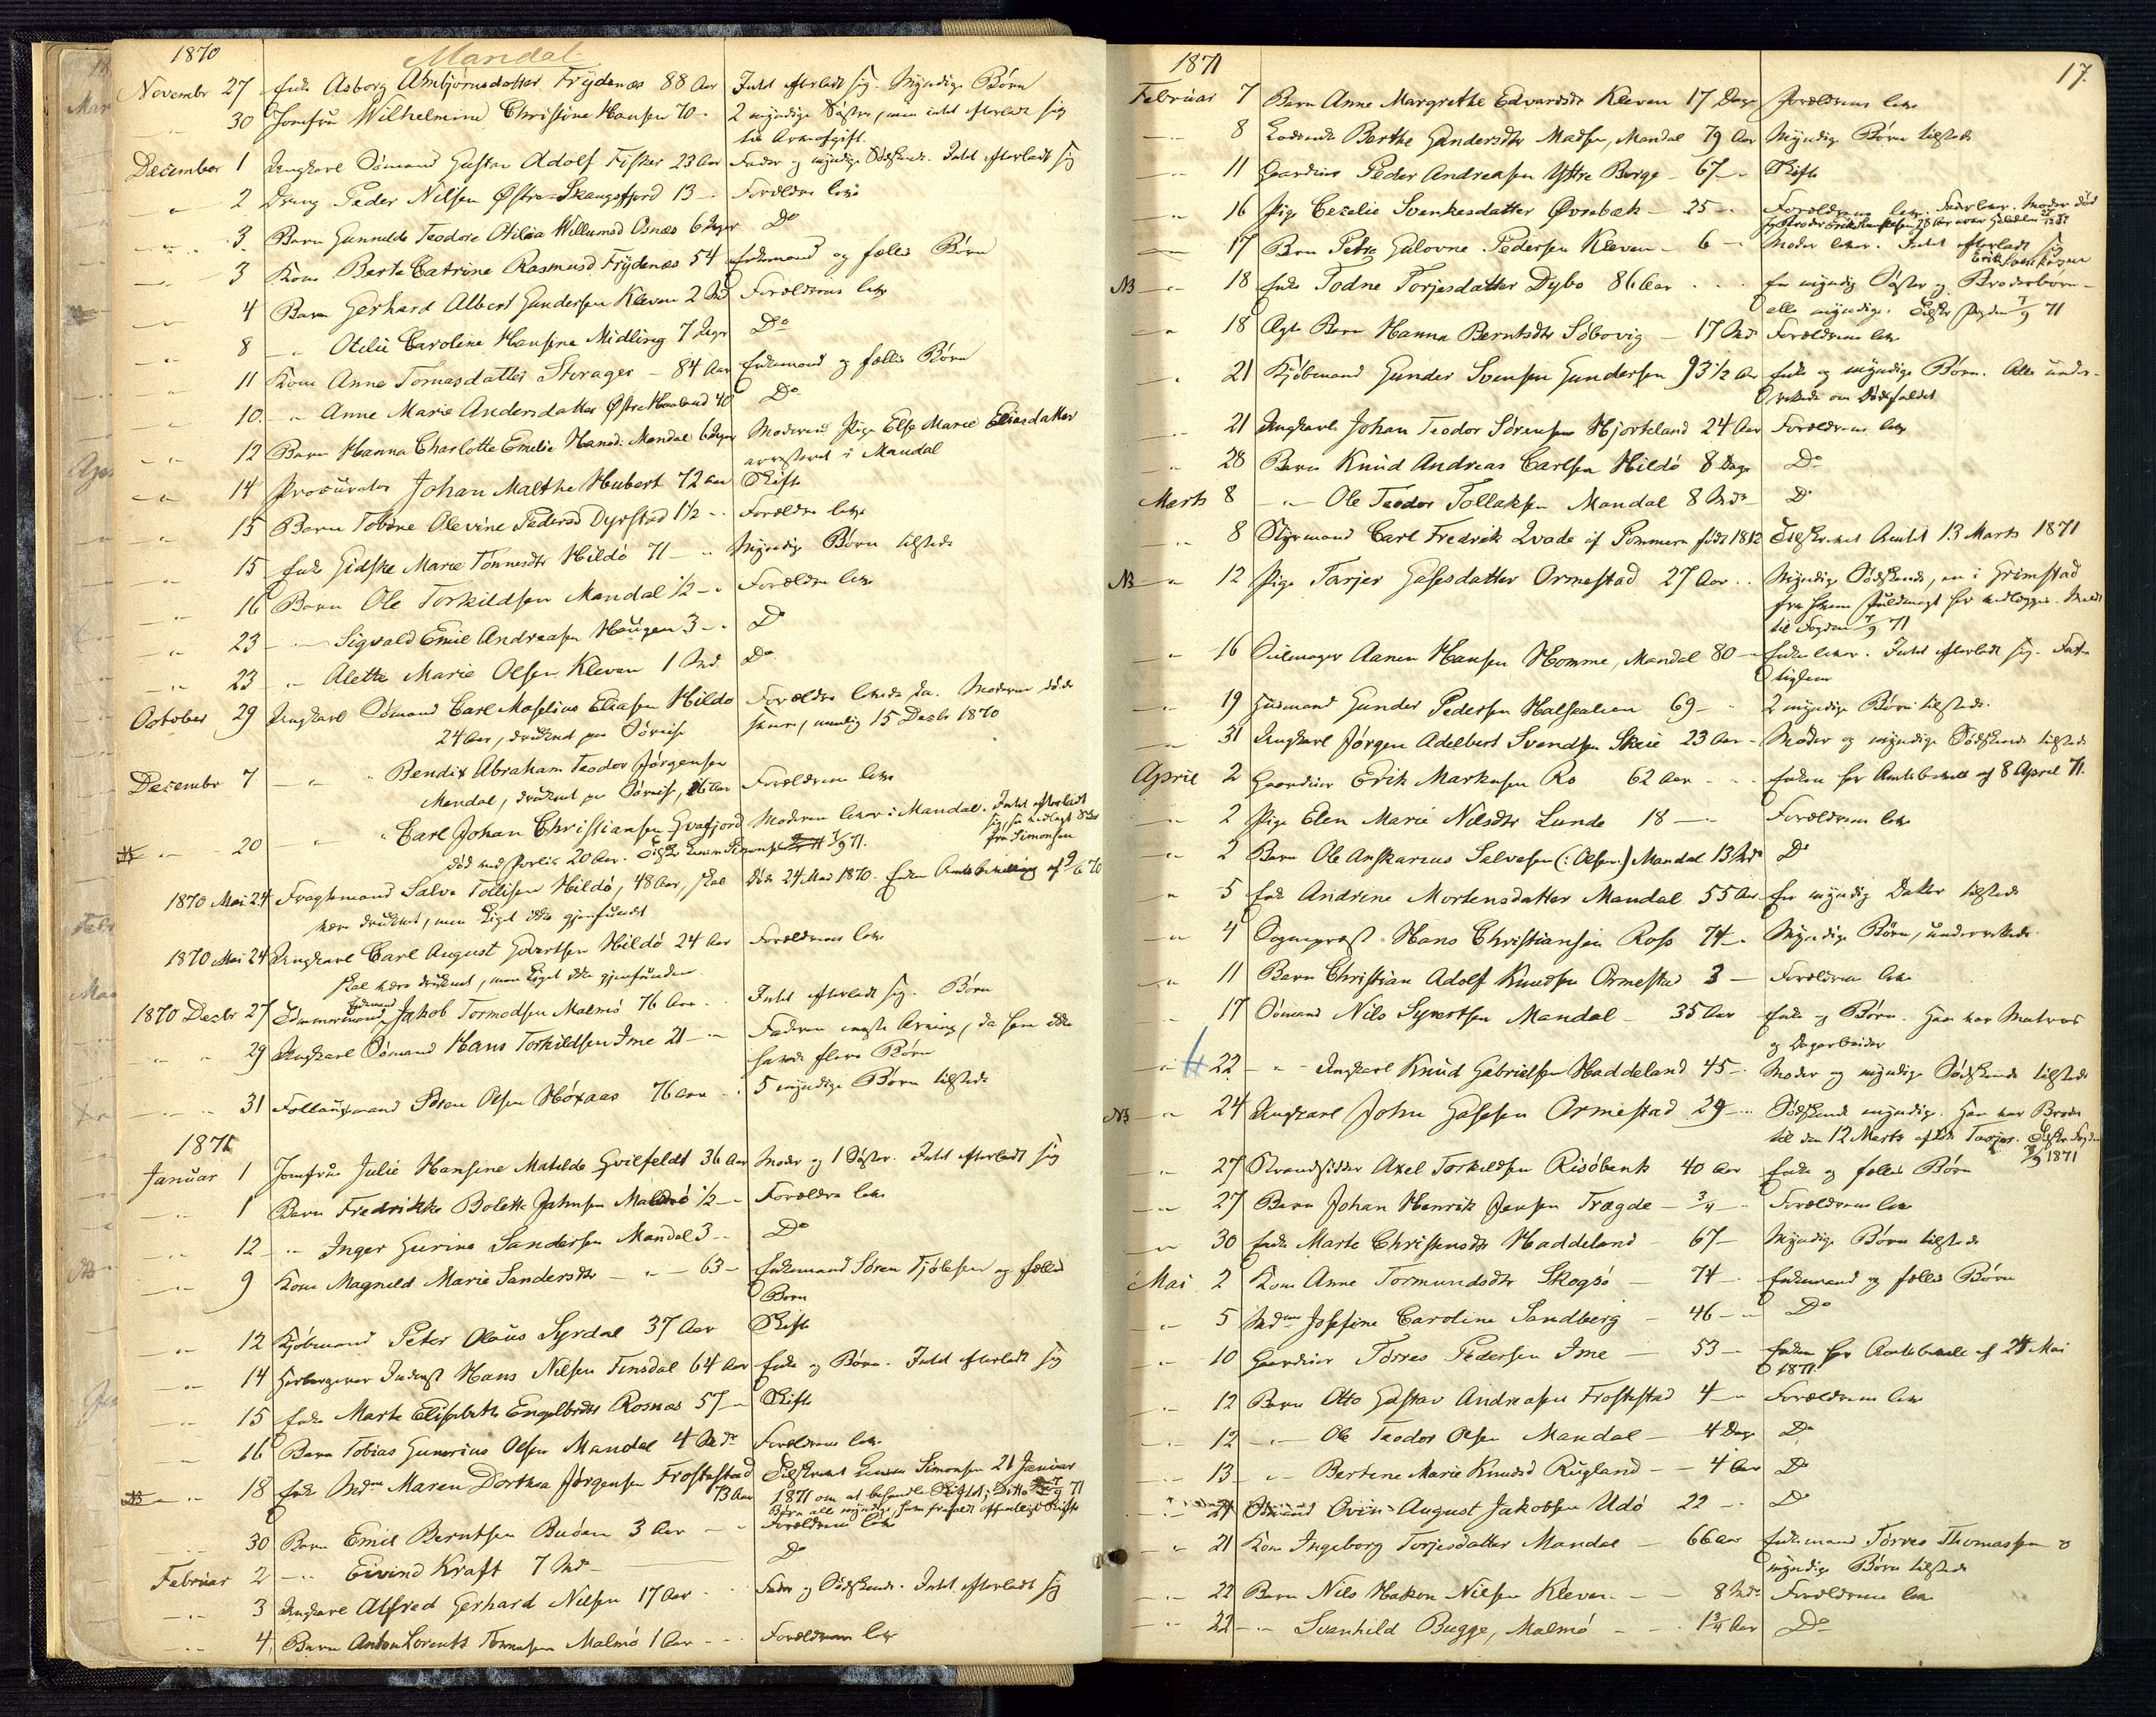 1870
Mandal
Novembr 27 Enke Asborg Abmbjørnsdatter Frydenæs 88 Aar Intet efterladt sig. Myndige Børn
30 Jomfru Wilhelmine Christine Hansen 70 - 2 myndige Søstre, men intet efterladt sig
til Arveafgift.
December 1 Ungkarl Sømand Gustav Adolf Fisker 23 Aar Fader og myndige Sødskende. Intet efterladt sig
2 Dreng Peder Nilsen Østre Skaugsfjord 13 - Forældre leve
3. Barn Gunnilde Teodore Otilia Willumsd Osnæs 6 Dage Do
3 Kone Berte Catrine Rasmusd Frydenæs 54 Enkemand og fælles Børn
4 Barn Gerhard Albert Gundersen Kleven 2 Md Forældrene leve
8 - Otilie Caroline Hansine Midling 7 Dage Do
11 Kone Anne Tomasdatter Storager - 84 Aar Enkemand og fælles Børn
10. " Anne Marie Andersdatter Østre Haaland 40 Do
12 Barn Hanna Charlotte Emelie Hansd. Mandal 6 Dage Moderen Pige Else Marie Eliasdatter
arresteret i Mandal
14 Procurator Johan Malthe Hubert 72 Aar Skifte
15 Barn Tobine Olevine Pedersd Dyrstad 1½ - Forældre leve
15 Enke Gidske Marie Tønnesdtr Hildø 71 - Myndige Børn tilstede
16 Barn Ole Torkildsen Mandal ½ - Forældre leve
23 - Sigvald Emil Andreasen Haugen 3 - Do
23 " Alette Marie Olsen Kleven 1 Md. Do
October 29 Ungkarl Sømand Carl Maselius Eliasen Hildø Forældre levede da. Moderen døde
24 Aar, druknet paa Søreise senere, nemlig 15 Decbr 1870
Decembr 7 - " Bendix Abraham Teodor Jørgensen
Mandal, druknet paa Søreise, 16 Aar Forældrene leve
20 - " Carl Johan Christiansen Gvafjord Moderen lever i Mandal. Intet efterladt
fra Simonsen
1870 Mai 24 Fragtemand Salve Tollisen Hildø, 48 Aar, skal Døde 24 Mai 1870. Enken Amtsbevilling af 9/6 70
være druknet, men Liget ikke gjenfundet
1870 Mai 24 Ungkarl Carl August Govertsen Hildø 24 Aar Forældrene leve
skal være druknet, men Liget ikke gjenfunden
1870 Decbr 27 Tømmermand Enkemand Jakob Tormodsen Malmø 76 Aar Intet efterladt sig. Børn
29 Ungkarl Sømand Hans Torkildsen Ime 21 - Faderen eneste Arving, da han ikke
havde flere Børn
31 Follaugsmand Søren Olsen Høxaas 76 Aar 5 myndige Børn tilstede
1871
Januar 1 Jomfru Julie Hansine Matilde Hvilfeldt 36 Aar Moder og 1 Søster. Intet efterladt sig
1 Barn Fredrikke Bolette Jahnsen Malmø ½ - Forældre leve
12 - Inger Gurine Sandersen Mandal 3 - Do
9 Kone Magnild Marie Sandersdtr - " - 63 - Enkemand Søren Tjølesen og fælles
Børn
12 Kjøbmand Peter Olaus Syrdal 37 Aar Skifte
14 Inderst Hans Nilsen Finsdal 64 Aar Enke og Børn. Intet efterladt sig
15 Enke Marte Elisabeth Engelbrdtr Rosnæs 57 - Skifte
16 Barn Tobias Gunerius Olsen Mandal 4 Mdr Forældrene leve
18 Enke Mdme Maren Dorthea Jørgensen Frostestad Tilskrevet Simonsen 21 Januar
73 Aar 1871 om at behandle Skiftet; Ditto 7/9 71
30 Barn Emil Berntsen Buøen 3 Aar - Forældrene leve
Februar 2 - Eivind Kraft 7 Md - Do
3 Ungkarl Alfred Gerhard Nilsen 17 Aar - Fader og Sødskende. Intet efterladt sig
4 Barn Anton Lorents Tønnesen Malmø 1 Aar - Forældrene leve
1871
17.
Februar 7 Barn Anne Margrethe Edvardsdtr Kleven 17 Dage Forældrene leve
8 Berthe Gundersdtr Madsen, Mandal 79 Aar Myndige Børn tilstede
11 Gaardmd Peder Andreasen Yttre Berge - 67 - Skifte
16 Pige Cecelie Svenkesdatter Øvrebæk - 25 - Forældrene leve. Fader lever. Moder død
17 Barn Petra Galovne Pedersen Kleven - 6 - Moder lever. Intet efterladt sig
Erik Svenkesen
NB 18 Enke Todne Torjesdatter Dybo 86 Aar En myndig Søster og Broderbørn -
alle myndige. Tilskr Fogden 7/9 71
18 Ægte Barn Hanna Berntsdtr Søbovig - 17 Mdr Forældrene leve
21 Kjøbmand Gunder Svensen Gundersen 93½ Aar Enke og myndige Børn. Alle under-
rettede om Dødsfaldet
21 Ungkarl Johan Teodor Sørensen Hjorteland 24 Aar Forældrene leve
28 Barn Knud Andreas Carlsen Hildø 8 Dage Do
Marts 8 - Ole Teodor Tollaksen Mandal 8 Mdr Do
8 Styrmand Carl Fredrik Quade af Pommern født 1812 Tilskrevet Amtet 13 Marts 1871
NB 12 Pige Tarjer Gasesdatter Ormestad 27 Aar Myndige Sødskende, en i Grimstad
fra hvem Fuldmagt her vedlægges.
til Fogden 7/9 71
16 Seilmager Aanen Hansen Homme, Mandal 80 - Enken lever. Intet efterladt sig. Fat-
tiglem
19 Husmand Gunder Pedersen Halsealeen 69 - 2 myndige Børn tilstede.
31 Ungkarl Jørgen Adelbert Svendsen Skeie 23 Aar - Moder og myndige Sødskende tilstede
April 2 Gaardmd Erik Markusen Ro 62 Aar Enken har Amtsbevill af 8 April 71.
2 Pige Elen Marie Nilsdtr Lunde 18 - Forældrene leve
2 Barn Ole Anskarius Salvesen (: Olsen.) Mandal 13 Mdr Do
5 Enke Andrine Mortensdatter Mandal 55 Aar En myndig Datter tilstede
4 Sognepræst Hans Christiansen Ross 74 - Myndige Børn, underrettede.
11 Barn Christian Adolf Knudsen Ormestad 3 - Forældrene leve
17 Sømand Nils Syvertsen Mandal - 35 Aar Enke og Børn. Han var Matros
og Dagarbeider
22 - Ungkarl Knud Gabrielsen Haddeland 45 - Moder og myndige Sødskende tilstede
NB 24 Ungkarl John Gasesen Ormestad 29 - Sødskende myndige. Han var Broder
til den 12 Marts afdøde Tarjer. Tilskr Fogden
7/9 1871
27 Strandsidder Axel Torkildsen Risøbank 40 Aar Enke og fælles Børn
27 Barn Johan Henrik Jensen Trægde - ¾ - Forældrene leve
30 Enke Marte Christensdtr Haddeland - 67 - Myndige Børn tilstede
Mai 2 Kone Anne Tormundsdtr Skogsø - 74 - Enkemand og fælles Børn
5 Mdme Josefine Caroline Sandberg - 46 - Do
10 Gaardmd Tørres Pedersen Ime - 53 - Enken har Amtsbevill af 24 Mai
1871.
12 Barn Otto Gustav Andreasen Frostestad 4 - Forældrene leve
12 - Ole Teodor Olsen Mandal - 4 Dage Do
13 - Bertine Marie Knudsd Rugland - 4 Aar Do
21 Ovin August Jakobsen Udø 22 - Do
21 Kone Ingeborg Torjesdatter Mandal - 66 Aar Enkemand Tørres Thomassen o
myndige Børn tilstede
22 Barn Nils Hakon Nilsen Kleven. - 8 Mdr Forældrene leve
22 - Svanhild Bugge, Malmø - 1¾ Aar Do